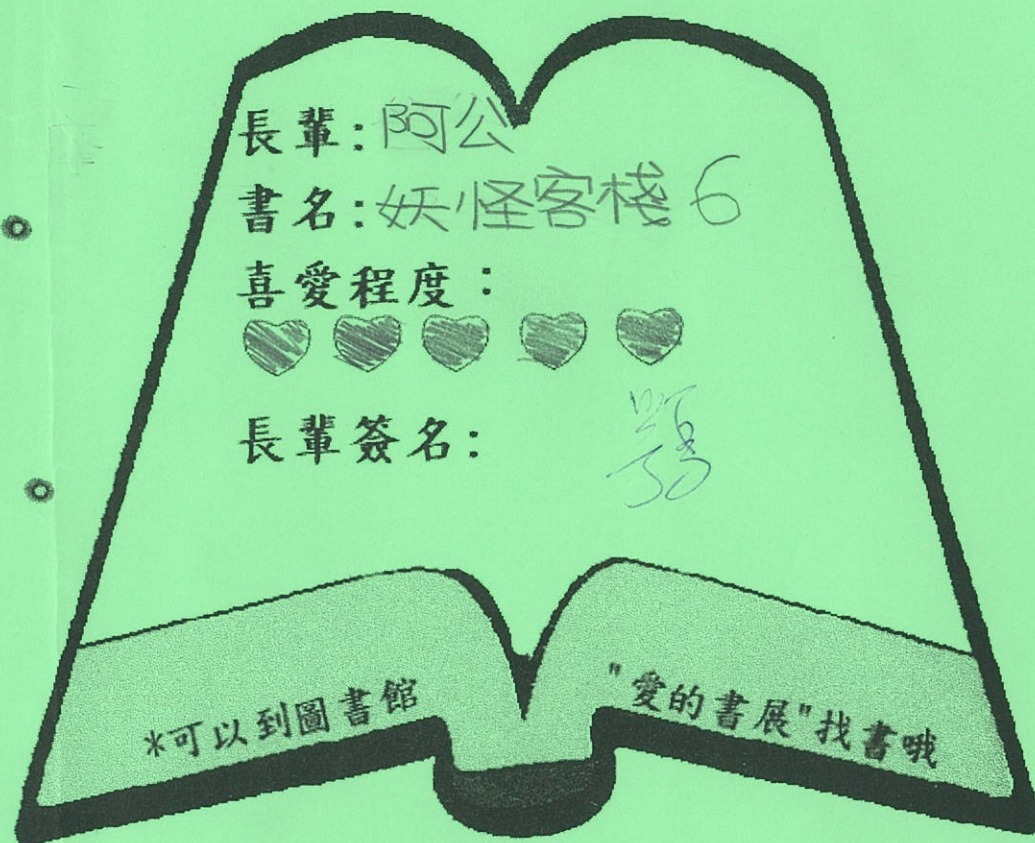 長輩：阿公
書名：妖怪客棧 6
喜愛程度：
長輩簽名：
*可以到圖書館 "愛的書展"找書哦